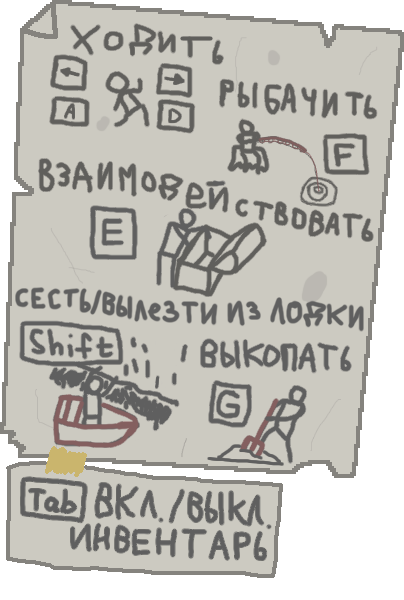 ХОДИТЬ
← →
A D
РЫБАЧИТЬ
F
ВЗАИМОДЕЙСТВОВАТЬ
E
СЕСТЬ/ВЫЛЕЗТИ ИЗ ЛОДКИ
Shift
ВЫКОПАТЬ
G
Tab ВКЛ./ВЫКЛ.
ИНВЕНТАРЬ